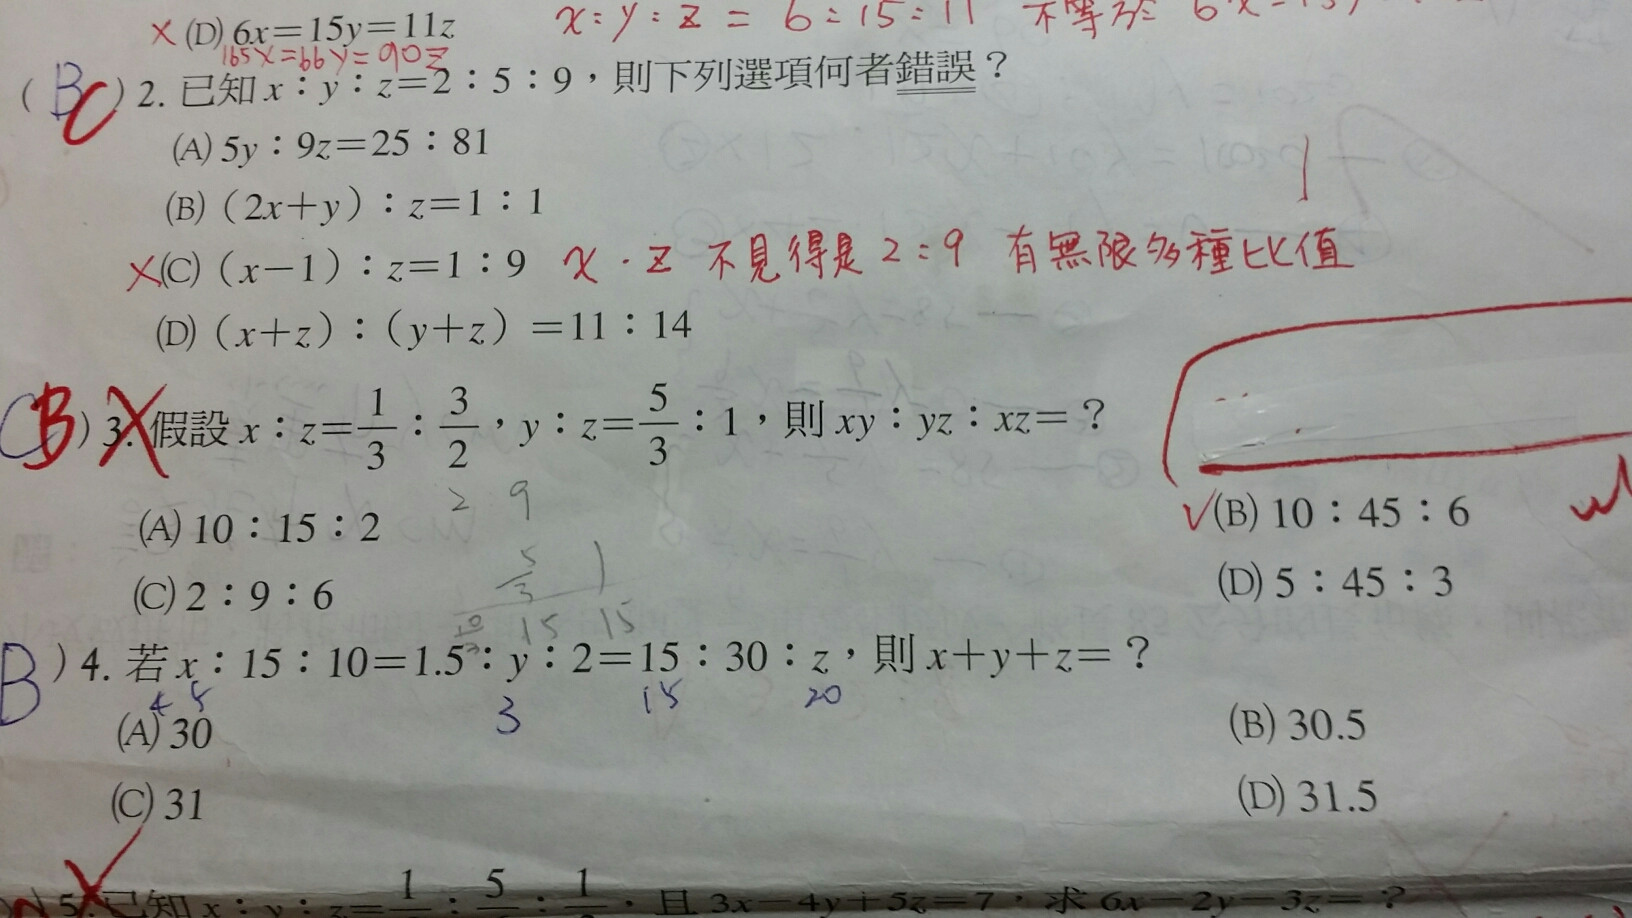 ×(D) 6x=15y=11z x:y:z=6:15:11 不等於
165x=66y=90z
(BC) 2. 已知 x：y：z=2：5：9，則下列選項何者錯誤？
(A) 5y：9z=25：81
(B)（2x+y）：z=1：1
×(C)（x−1）：z=1：9 x．z 不見得是 2:9 有無限多種比值
(D)（x+z）：（y+z）=11：14
B) 3. 假設 x：z=1/3：3/2，y：z=5/3：1，則 xy：yz：xz=？
2 9
(A) 10：15：2 ✓(B) 10：45：6
5/3 1
(C) 2：9：6 (D) 5：45：3
15 15
B) 4. 若 x：15：10=1.5：y：2=15：30：z，則 x+y+z=？
3 15 20
(A) 30 (B) 30.5
(C) 31 (D) 31.5
5. 已知 x：y：z= 且 3x−4y+5z=7，求 6x−2y−3z=？